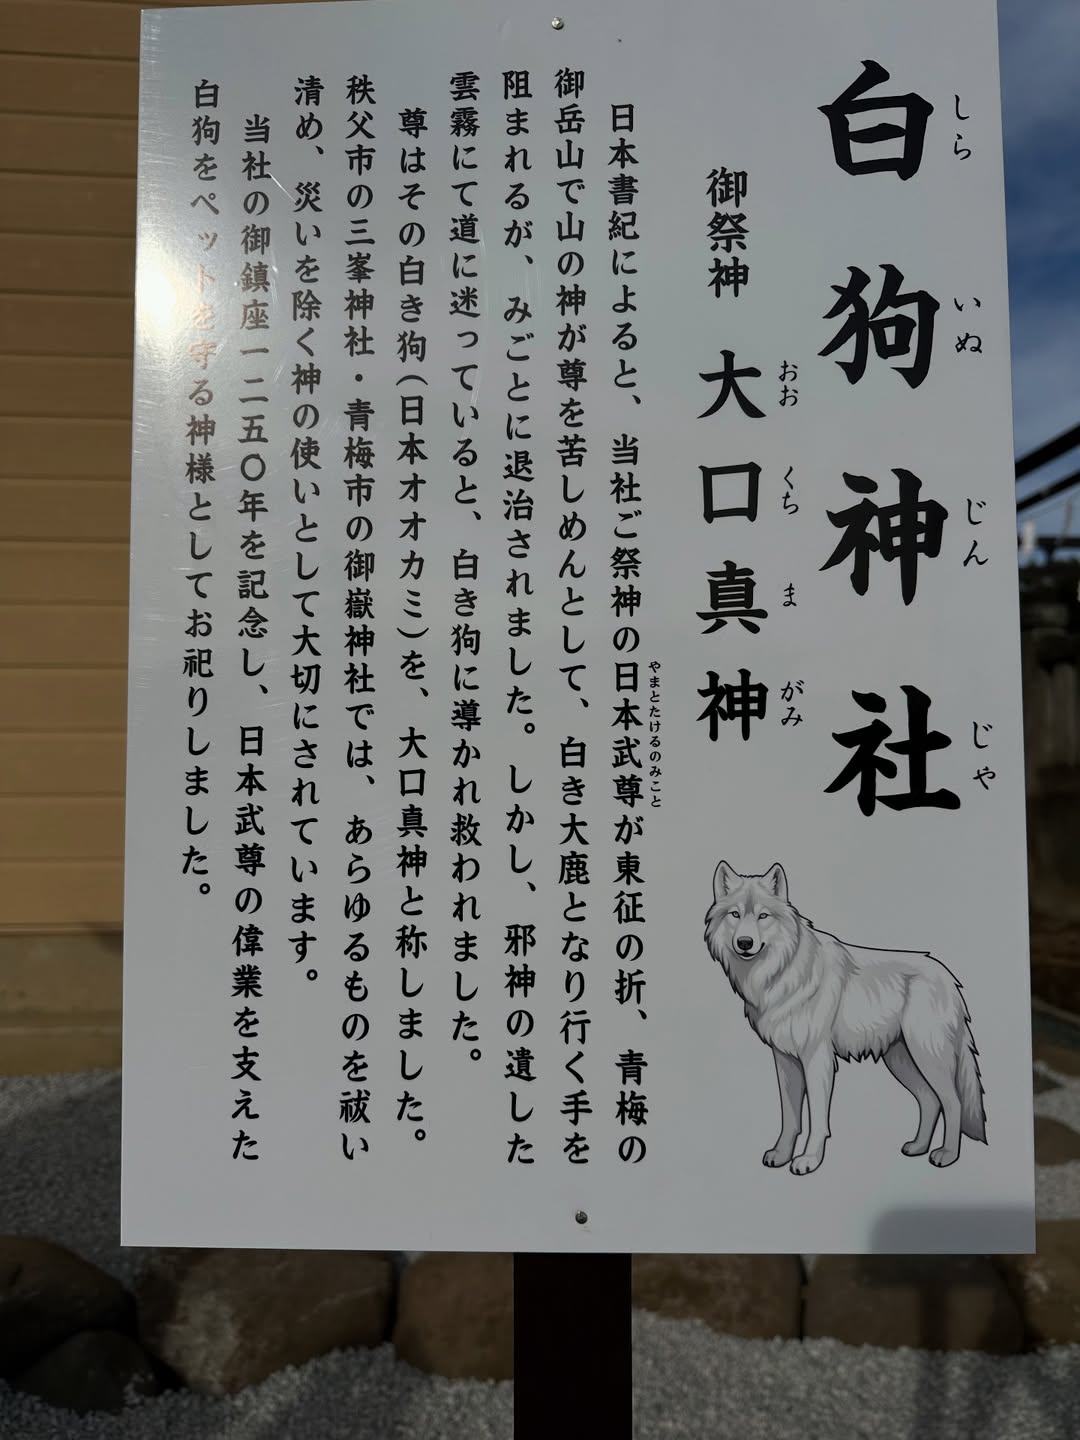 白狗神社
しらいぬじんじゃ
御祭神 大口真神
おおくちまがみ
日本書紀によると、当社ご祭神の日本武尊が東征の折、青梅の
やまとたけるのみこと
御岳山で山の神が尊を苦しめんとして、白き大鹿となり行く手を
阻まれるが、みごとに退治されました。しかし、邪神の遺した
雲霧にて道に迷っていると、白き狗に導かれ救われました。
尊はその白き狗(日本オオカミ)を、大口真神と称しました。
秩父市の三峯神社・青梅市の御嶽神社では、あらゆるものを祓い
清め、災いを除く神の使いとして大切にされています。
当社の御鎮座一二五〇年を記念し、日本武尊の偉業を支えた
白狗をペットを守る神様としてお祀りしました。